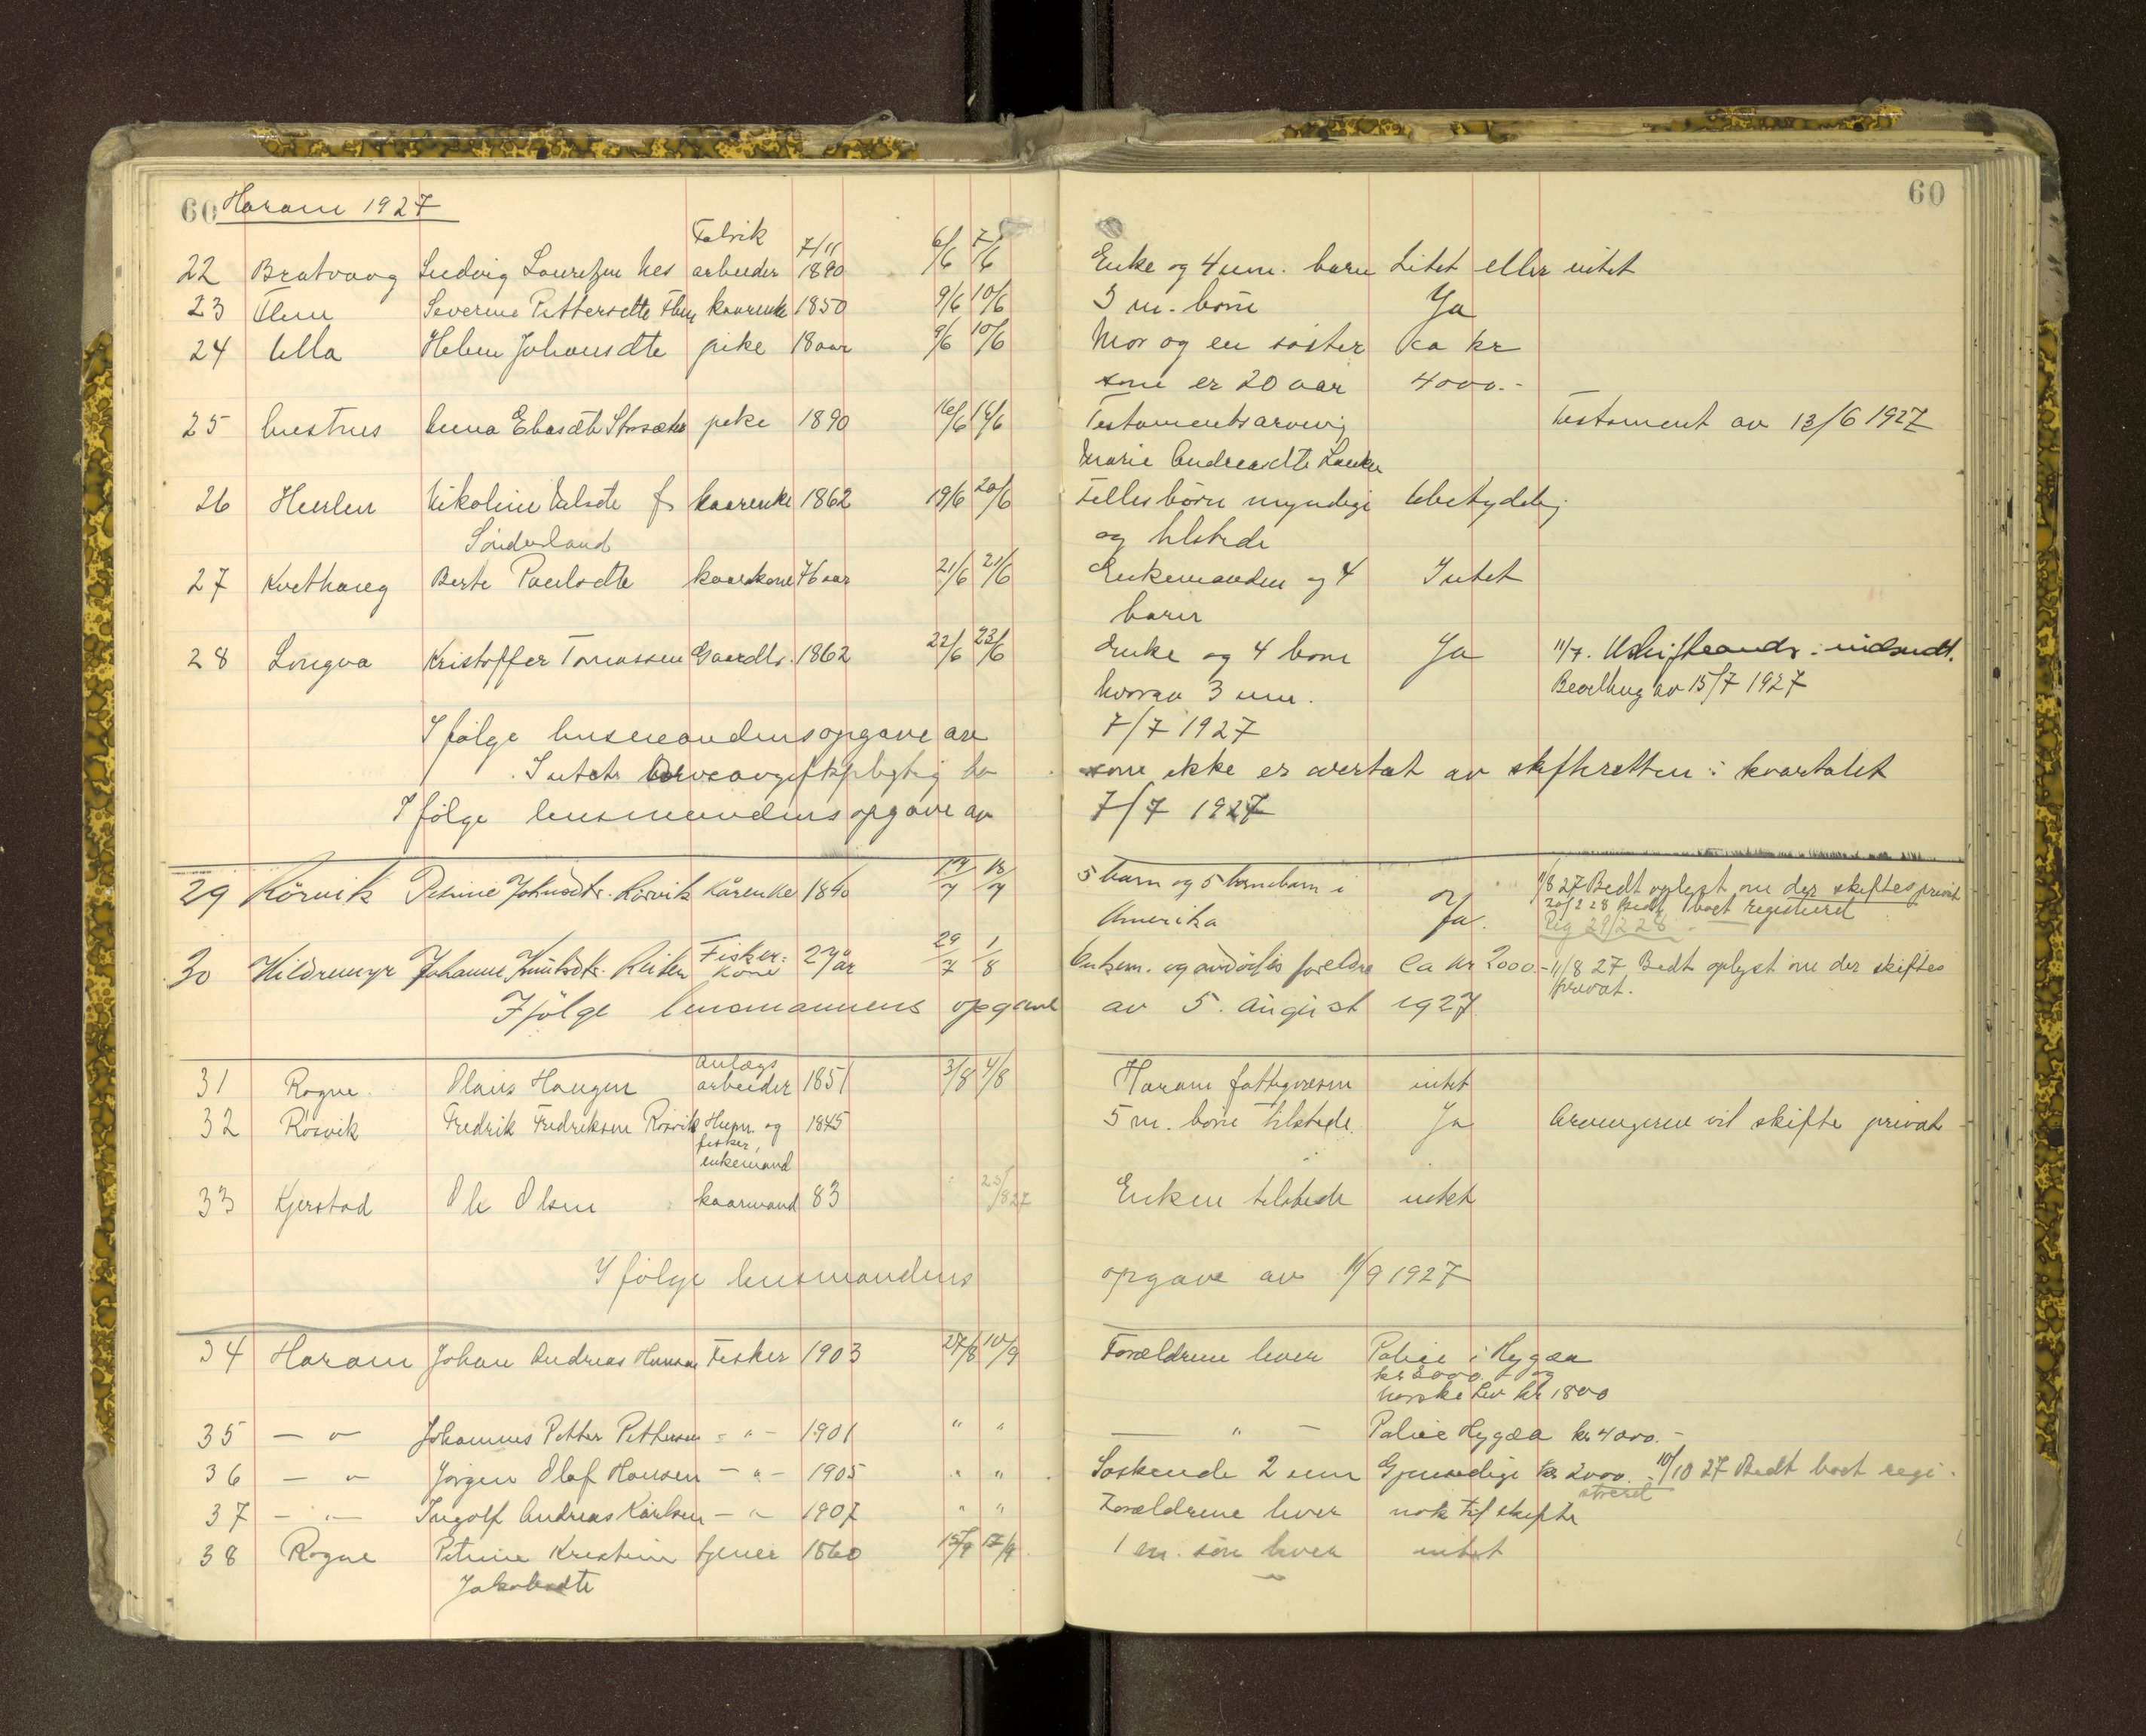 60 Haram 1927 60
Fabrik
22 Bratvaag Ludvig Lauritzen Nes arbeider 7/11 1890 6/6 7/6 Enke og 4 um. barn Litet eller intet
23 Flem Severine Pettersdtte Flem kaarenke 1850 9/6 10/6 3 m. børn Ja
24 Ulla Helene Johansdtte pike 18 aar 9/6 10/6 Mor og en søster ca kr
som er 20 aar 4000.-
25 Austnes Anna Eliasdtte pike 1890 16/6 16/6 Testamentsarving Testament av 13/6 1927
Marie Andreasdtte
26 Hellen Nikoline f kaarenke 1862 19/6 20/6 Fellesbørn myndige Ubetydelig
Sønderland og tilstede
27 Kvithaug Berte Paulsdtte kaarkone 76 aar 21/6 21/6 Enkemanden og 4 Intet
barn
28 Longva Kristoffer Tomassen Gaardbr. 1862 22/6 23/6 Enke og 4 born Ja 11/7. Uskifteandr. indsendt.
hvorav 3 um. Bevilling av 15/7 1927
Ifølge lensmandens opgave av 7/7 1927
Intet Arveavgiftspligtig bo som ikke er overtat av skifteretten i kvartalet
Ifølge lensmandens opgave av 7/7 1927
29 Rørvik Petrine Johnsdtr. Rørvik kårenke 1840 17/7 18/7 5 barn og 5 barnebarn i Ja. 1/8 27 Bedt oplyst om der skiftes privat
Amerika 20/2 28 Bedt boet registrert
Reg 29/2 28
30 Hildremyr Johanne Knutsdtr. Reiten Fisker-kone 27 år 29/7 1/8 Enkem. og avdødes foreldre Ca kr 2000.- 11/8 27 Bedt oplyst om der skiftes
privat.
Ifølge lensmannens opgave av 5. august 1927
31 Rogne Olaus Haugen Anlægsarbeider 1851 3/8 4/8 Haram fattigvæsen intet
32 Røsvik Fredrik Fredriksen Røsvik Husm. og 1845 5 m. børn tilstede. Ja Arvingerne vil skifte privat
fisker,
enkemand
33 Kjerstad Ole Olsen kaarmand 83 23/8 27 Enken tilstede intet
Ifølge lensmandens opgave av 1/9 1927
34 Haram Johan Andreas Hansen Fisker 1903 27/8 10/9 Forældrene lever Police i Hygæa
kr 2000 og
Norske Liv kr 1800
35 — " — Johannes Petter Pettersen - " - 1901 " " — " — Police Hygæa kr 4000.-
36 — " — Jørgen Olaf Hansen - " - 1905 " " Søskende 2 um Gjensidige kr 2000.- 10/10 27 Bedt boet regi-
streret
37 - " - Ingolf Andreas Karlsen - " - 1907 " " Forældrene lever nok til skifte
38 Rogne Petrine Kristine tjener 1860 15/9 17/9 1 m. søn lever intet
Jakobsdtte